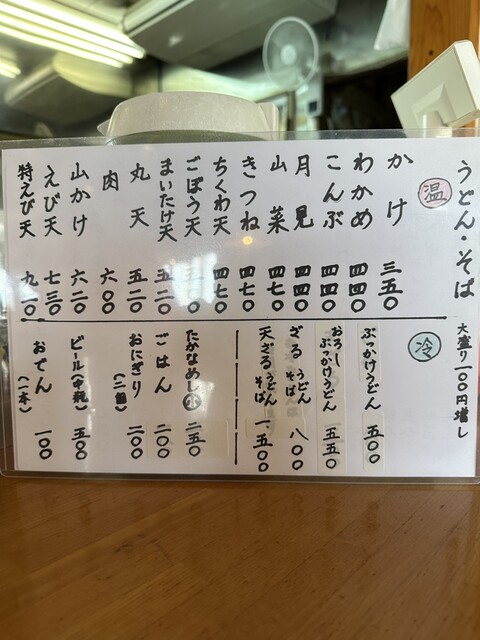 うどん・そば
大盛り一〇〇円増し
温
かけ 三五〇
わかめ 四四〇
こんぶ 四四〇
月見 四四〇
山菜 四七〇
きつね 四七〇
ちくわ天 四七〇
ごぼう天
まいたけ天 五二〇
丸天 五二〇
肉 六〇〇
山かけ 六二〇
えび天 七三〇
特えび天 九一〇
冷
ぶっかけうどん 五〇〇
おろしぶっかけうどん 五五〇
ざるうどんそば 八〇〇
天ざるうどんそば 一、五〇〇
たかなめし㊌ 二五〇
ごはん 二〇〇
おにぎり(二個) 二〇〇
ビール(中瓶) 五〇〇
おでん(一本) 一〇〇